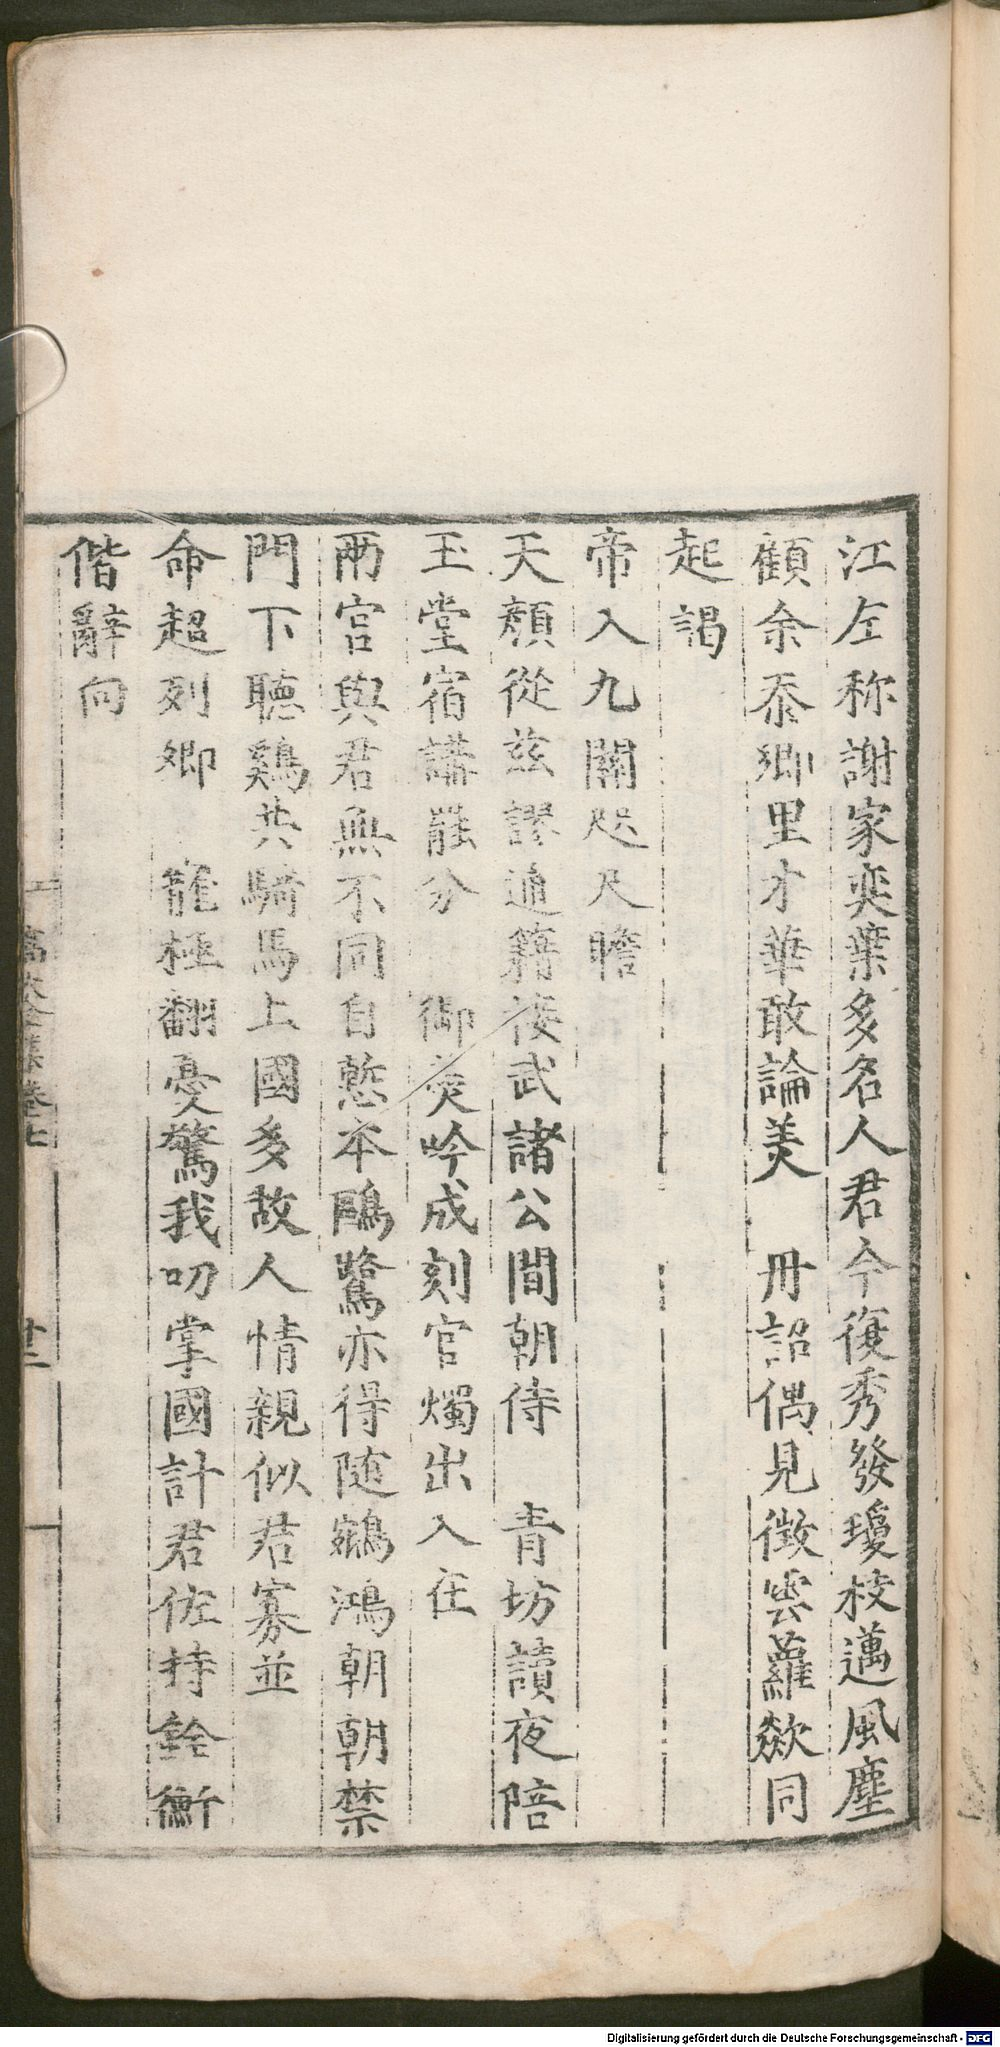 江左称謝家奕葉多名人君今復秀發瓊枝邁風塵
顧余忝卿里才華敢論美　冊詔偶見徴雲蘿歘同
起謁
帝入九關咫尺瞻
天顏從茲謬通籍接武諸公間朝侍　青坊讀夜陪
玉堂宿講罷分　御羹吟成刻官燭出入在
兩宫與君無不同自慙本鷗鷺亦得随鵷鴻朝朝禁
門下聽鷄共騎馬上國多故人情親似君寡並
命超列卿　寵極翻憂驚我叨掌國計君佐持銓衡
偕辭向
卷七
廿二
Digitalisierung gefördert durch die Deutsche Forschungsgemeinschaft - DFG